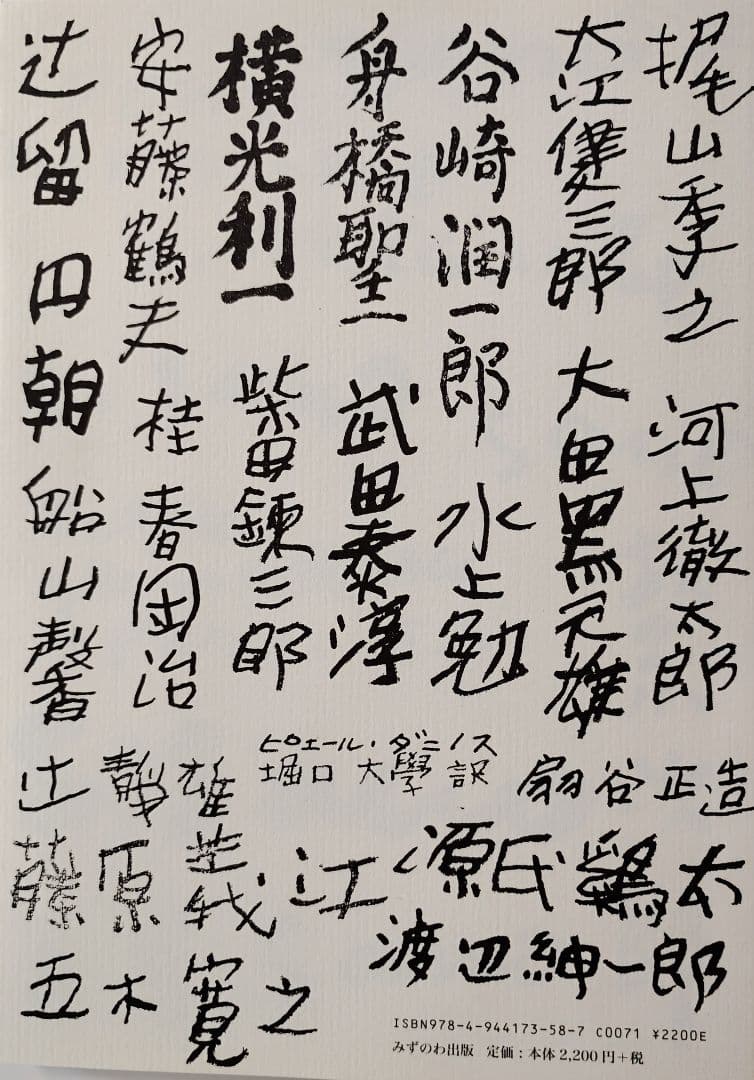 梶山季之
河上徹太郎
大江健三郎
大田黒元雄
谷崎潤一郎
水上勉
舟橋聖一
武田泰淳
横光利一
柴田錬三郎
安藤鶴夫
桂春団治
辻留
円朝
船山馨
ピエール・ダニノス
堀口大學訳
扇谷正造
辻静雄
源氏鶏太
江
藤原
渡辺紳一郎
五木寛之
ISBN978-4-944173-58-7 C0071 ¥2200E
みずのわ出版 定価:本体2,200円+税